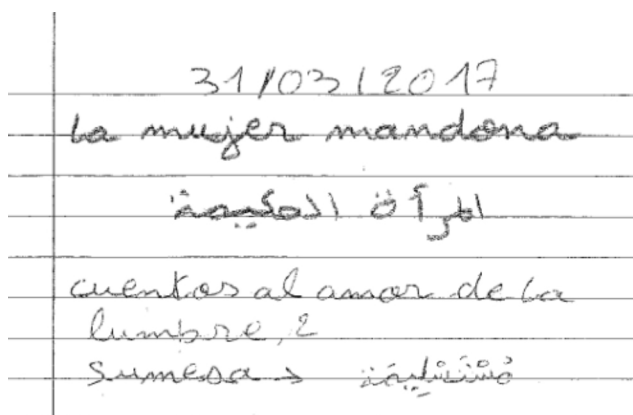 31/03/2017
La mujer mandona
المرآة الحكيمة
cuentos al amor de la
lumbre, 2
sumesa →